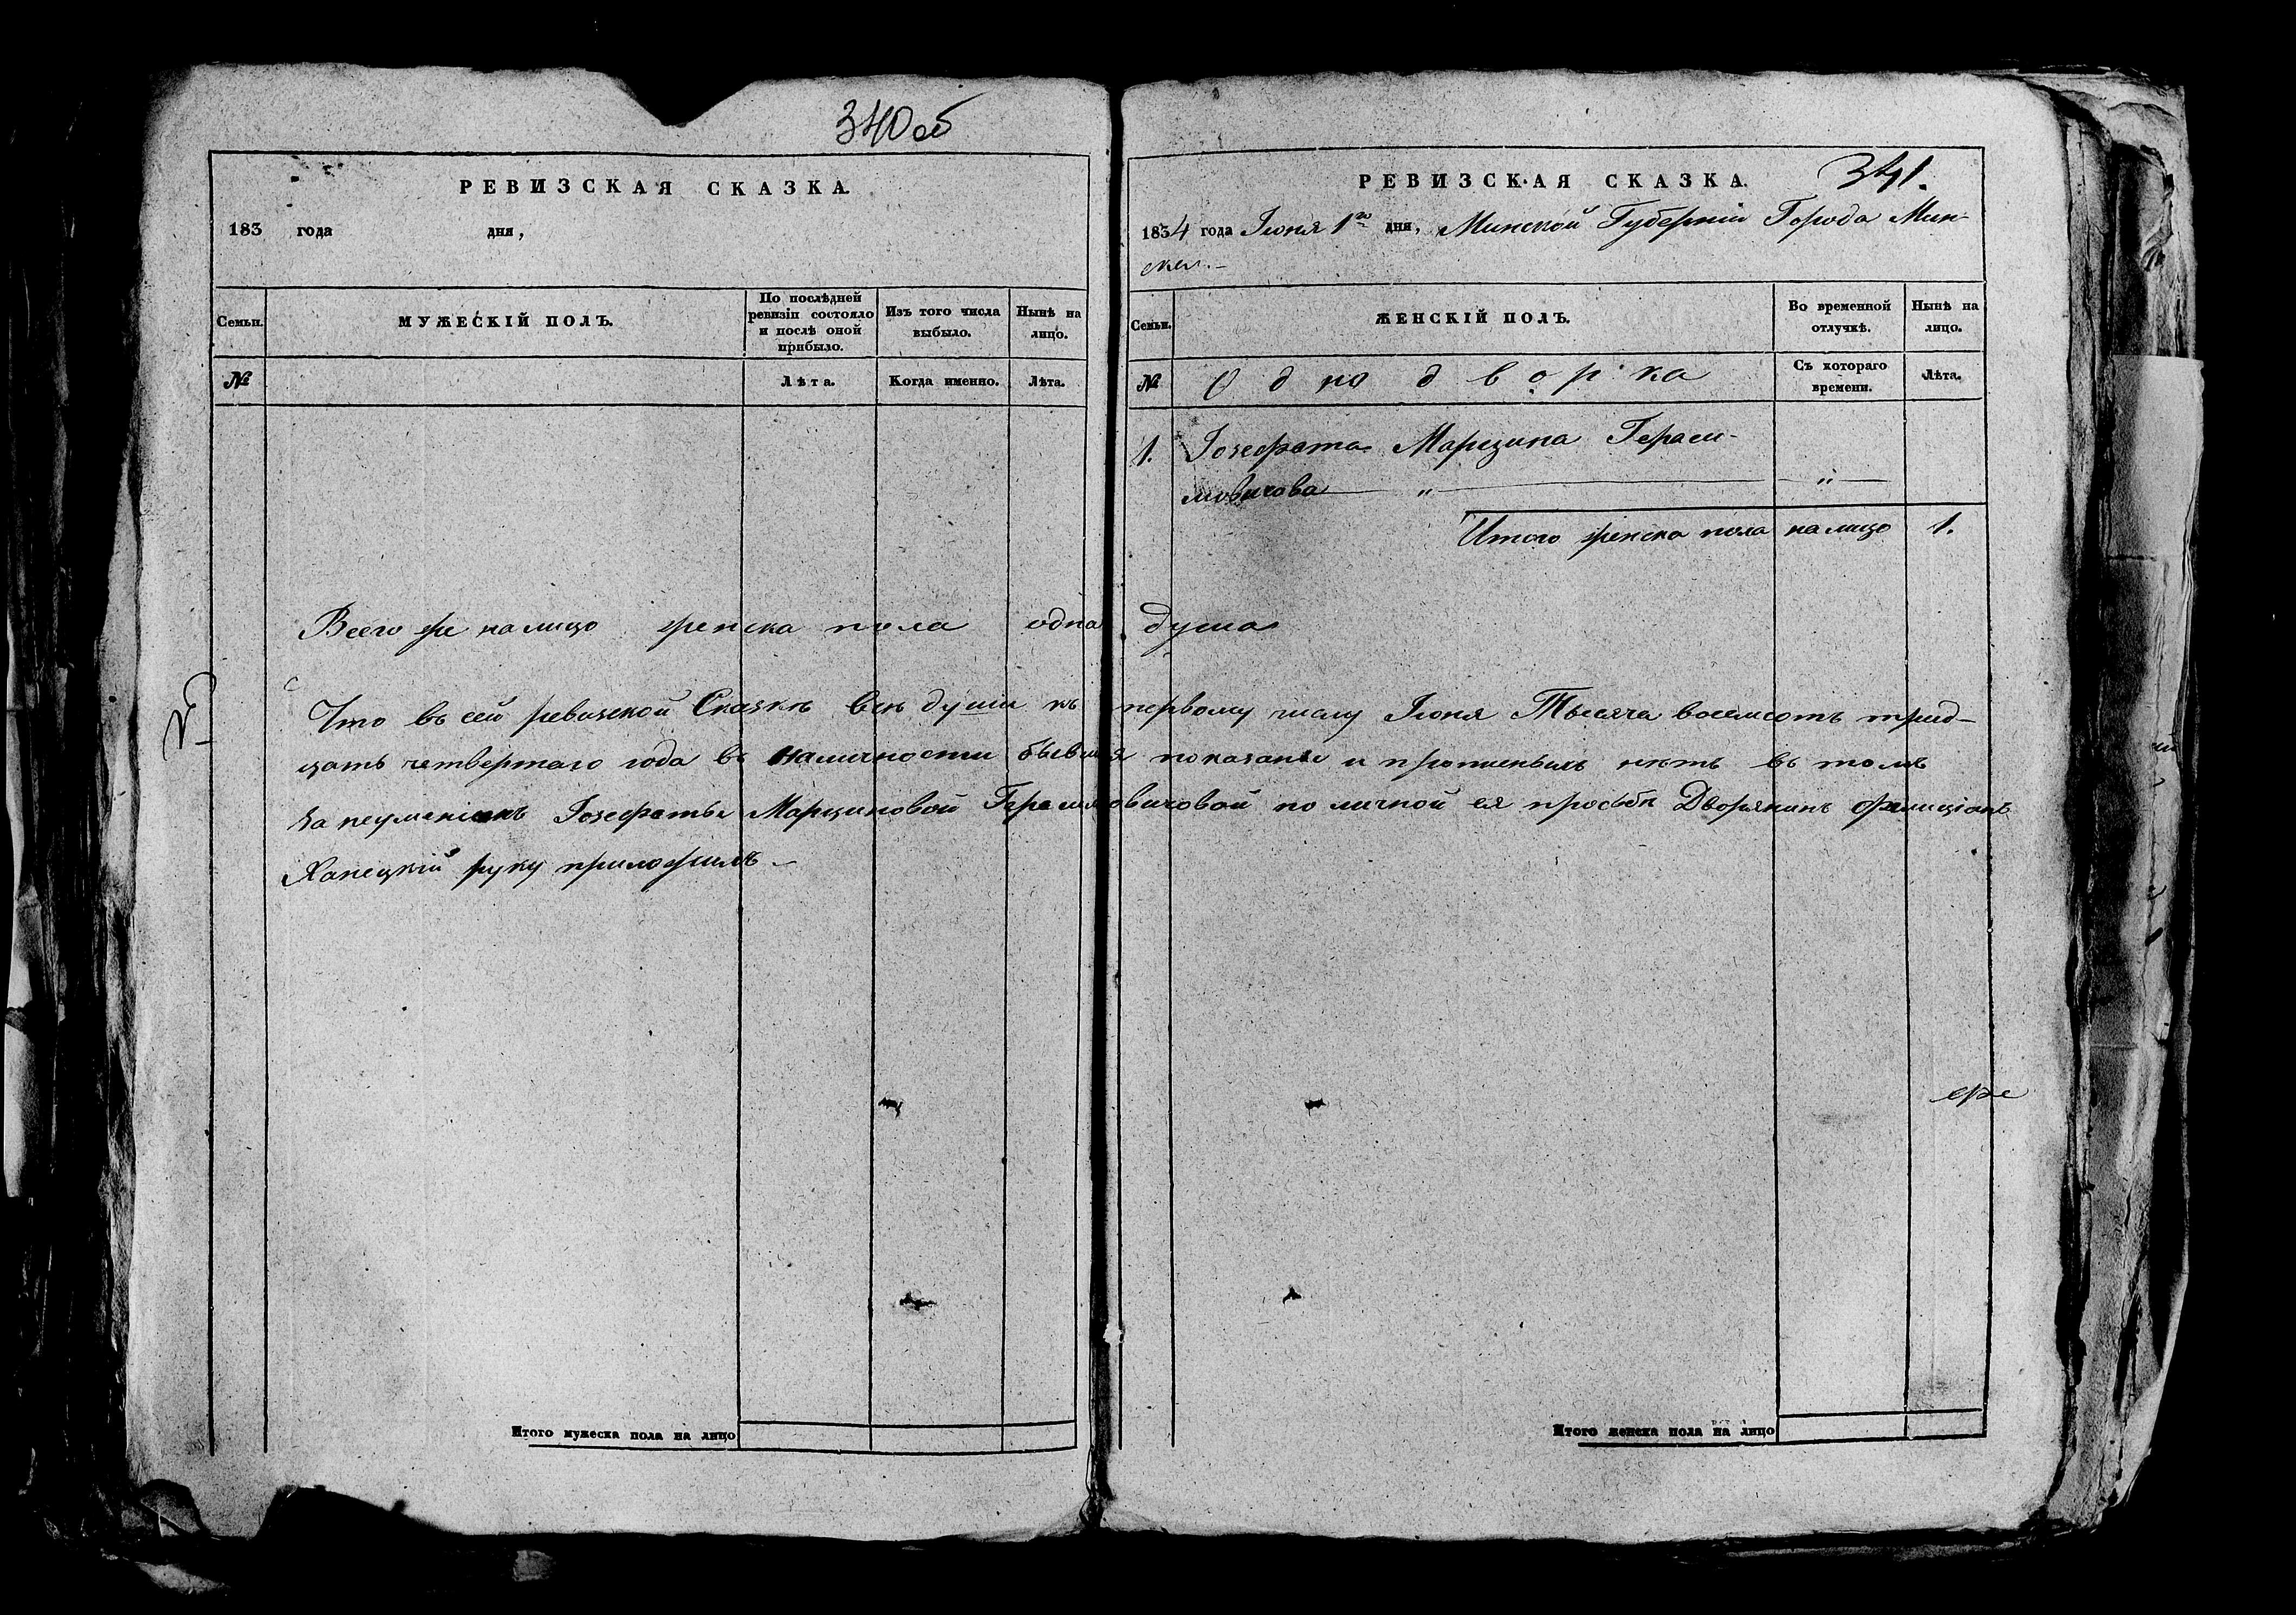 340об
РЕВИЗСКАЯ СКАЗКА.
183 года дня,
Семьи.
МУЖЕСКІЙ ПОЛЪ.
По послѣдней
ревизіи состояло
и послѣ оной
прибыло.
Изъ того числа
выбыло.
Нынѣ на
лицо.
№
Лѣта.
Когда именно.
Лѣта.
341.
РЕВИЗСКАЯ СКАЗКА.
1834 года Іюня 1го дня, Минской Губерніи Города Мин-
ска.-
Семьи.
ЖЕНСКІЙ ПОЛЪ.
Во временной
отлучкѣ.
Нынѣ на
лицо.
№
Однодворка
Съ котораго
времени.
Лѣта.
1. Іозефата Марцина Гераси-
мовичова — „ — „ —
Итого женска пола на лицо 1.
Всего же на лицо женска пола одна душа
Что въ сей ревизской Сказкѣ всѣ души къ первому числу Іюня Тысяча восемсотъ трид-
цать четвертаго года въ наличности бывшія показаны и прописныхъ нѣтъ въ томъ
за неуменіемъ Іозефаты Марциновой Герасимовичовой по личной ея просьбѣ Дворянинъ Фелиціанъ
руку приложилъ.-
Итого мужеска пола на лицо
Итого женска пола на лицо